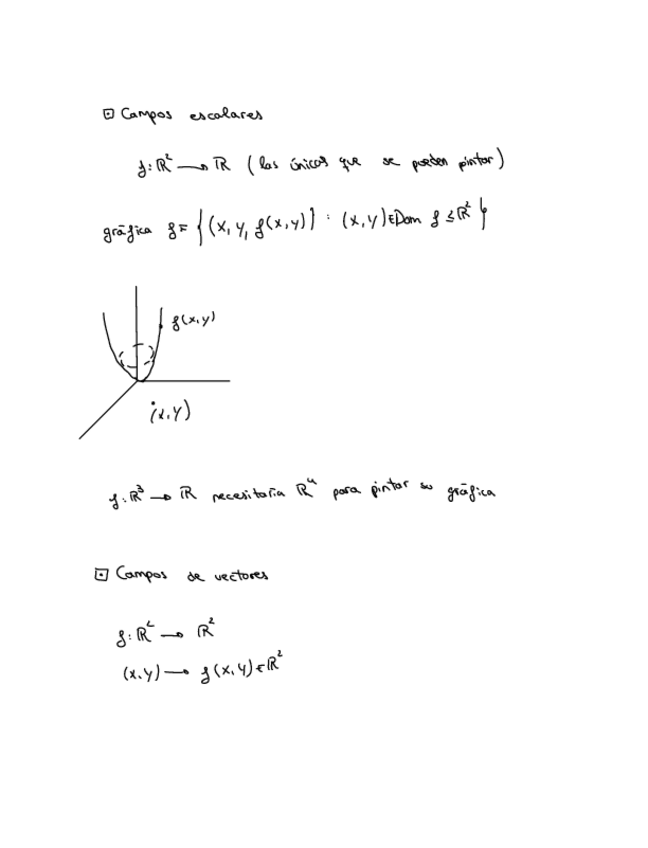 ⊡ Campos escalares
f: ℝ² → ℝ (las únicas que se pueden pintar)
gráfica f = {(x, y, f(x,y)) : (x,y) ∈ Dom f ≤ ℝ²}
f(x,y)
(x,y)
f: ℝ³ → ℝ necesitaría ℝ⁴ para pintar su gráfica
⊡ Campos de vectores
f: ℝ² → ℝ²
(x,y) → f(x,y) ∈ ℝ²